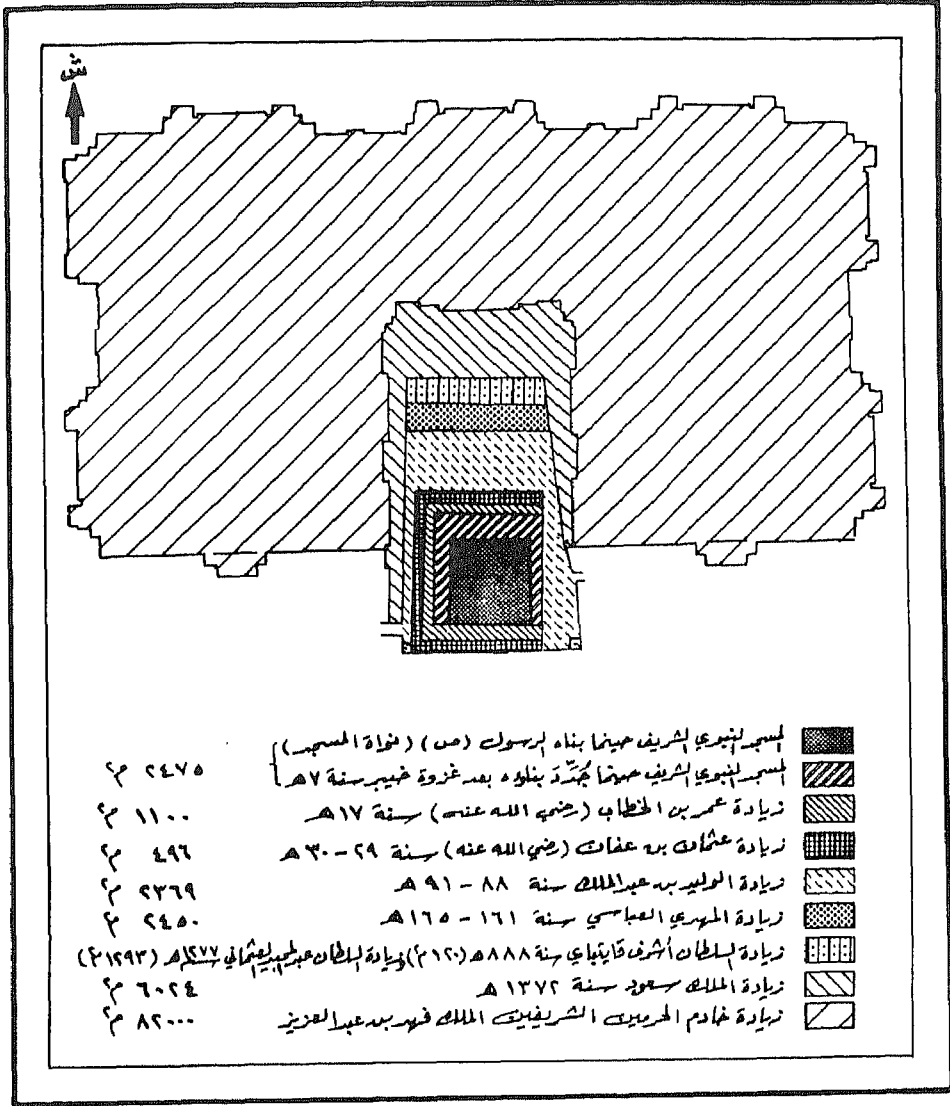 ش
المسجد النبوي الشريف حينما بناه الرسول (ص) (نواة المسجد)
المسجد النبوي الشريف حينما جُدِّدَ بناؤه بعد غزوة خيبر سنة ٧هـ ٢٤٧٥ م٢
زيادة عمر بن الخطاب (رضي الله عنه) سنة ١٧هـ ١١٠٠ م٢
زيادة عثمان بن عفان (رضي الله عنه) سنة ٢٩ - ٣٠هـ ٤٩٦ م٢
زيادة الوليد بن عبدالملك سنة ٨٨ - ٩١ هـ ٢٣٦٩ م٢
زيادة المهدي العباسي سنة ١٦١ - ١٦٥هـ ٢٤٥٠ م٢
زيادة السلطان أشرف قايتباي سنة ٨٨٨هـ (١٢٠م٢) وزيادة السلطان عبدالمجيد العثماني سنة ١٢٧٧هـ (١٢٩٣م٢)
زيادة الملك سعود سنة ١٣٧٢ هـ ٦٠٢٤ م٢
زيادة خادم الحرمين الشريفين الملك فهد بن عبدالعزيز ٨٢٠٠٠ م٢